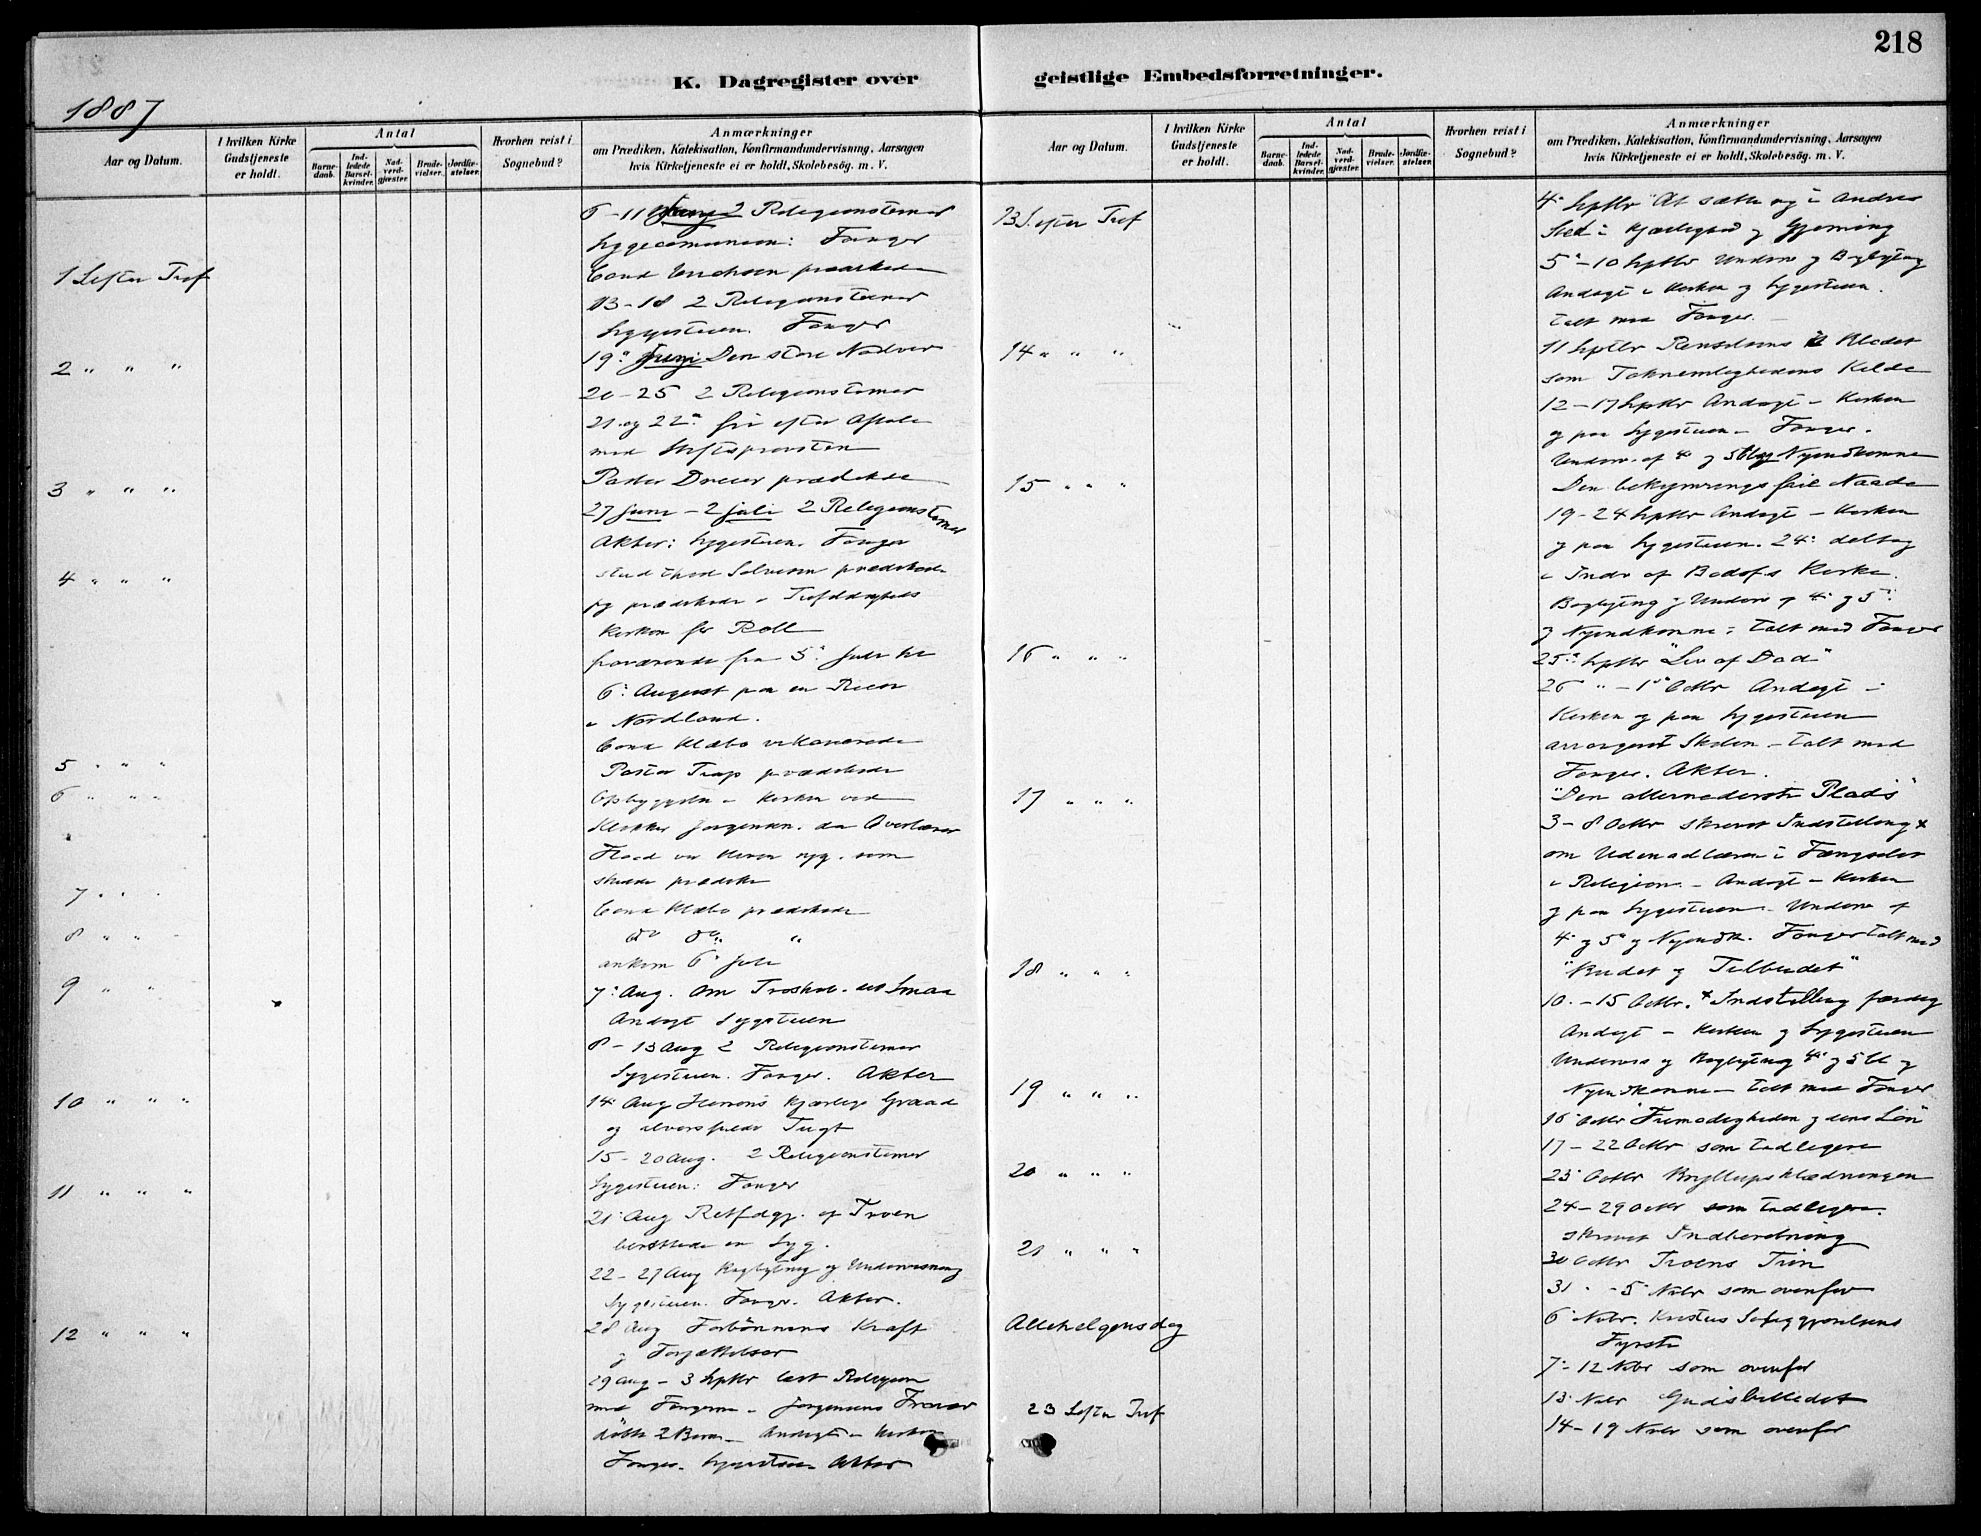 218
K. Dagregister over geistlige Embedsforretninger.
1887
Aar og Datum.
I hvilken Kirke Gudstjeneste er holdt.
Antal
Barne-daab.
Ind-ledede Barsel-kvinder.
Nad-verd-gjæster.
Brude-vielser.
Jordfæ-stelser.
Hvorhen reist i Sognebud?
Anmærkninger
om Prædiken, Katekisation, Konfirmandundervisning, Aarsagen
hvis Kirketjeneste ei er holdt, Skolebesøg. m. V.
6-11 Juni 2 Religionstimer
Fanger
1 S efter Tref
Cand prædikede
13-18 2 Religionstimer
Sygestuen. Fanger
2 " " "
19de Juni Den store Nadver
20-25 2 Religionstimer
21 og 22de fri efter Aftale
med Stiftsprovsten
3 " " "
Pastor Dreier prædikede
27 Juni - 2 Juli 2 Religionstimer
Akter: Sygestuen. Fanger
4 " " "
stud theol prædikede
Jeg prædikede i
Kirken for Roll
fraværende fra 5. Juli til
6. August paa en Reise
i Nordland.
Cand Klæbo vikarierede
5 " " "
Pastor Trap prædikede
6 " " "
Opbyggelse i Kirken ved
Klokker Jørgensen. da Overlærer
var bleven syg. som
skulde prædike
7 " " "
Cand Klæbo prædikede
8 " " "
do do "
ankom 6. Juli
9 " " "
7. Aug. Om det Smaa
Andagt Sygestuen
8-13 Aug 2 Religionstimer
Sygestuen. Fanger. Akter
10 " " "
14. Aug Herrens kjærlige Graad
og alvorsfulde Tugt
15-20 Aug. 2 Religionstimer
Sygestuen: Fanger
11 " " "
21. Aug Retfdgj. af Troen
berettede en Syg.
22-27 Aug Bogbytning og Undervisning
Sygestuen. Fanger. Akter.
12 " " "
28 Aug Forbønnens Kraft
og Forjættelser
29 Aug - 3 Septbr læst Religion
med Fangerne - Jørgensens Fravær
døbt 2 Børn - Andagt i Kirken
Fanger. Sygestuen Akter
Aar og Datum.
I hvilken Kirke Gudstjeneste er holdt.
Antal
Barne-daab.
Ind-ledede Barsel-kvinder.
Nad-verd-gjæster.
Brude-vielser.
Jordfæ-stelser.
Hvorhen reist i Sognebud?
Anmærkninger
om Prædiken, Katekisation, Konfirmandundervisning, Aarsagen
hvis Kirketjeneste ei er holdt, Skolebesøg. m. V.
13 S. efter Tref
4. Septbr "At sætte sig i Andres
Sted i Kjærlighed og Gjerning
5. - 10 Septbr Underv og Bogbytning
Andagt i Kirken og Sygestuen.
talt med Fanger.
14 " " "
11 Septbr Renselsens Blodet
som Taknemlighedens Kilde
12-17 Septbr Andagt i Kirken
og paa Sygestuen - Fanger.
Underv. af 4. og 5 Kl og Nyendkomne
15 " " "
Den bekymringsfrie Naade
19-24 Septbr Andagt i Kirken
og paa Sygestuen. 24. deltog
i Indv af Kirke.
Bogbytning og Underv af 4. og 5.
og Nyendkomne: talt med Fanger
16 " " "
25. Septbr "Liv af Død"
26 " - 1. Octbr Andagt i
Kirken og paa Sygestuen
arrangeret Skolen - talt med
Fanger. Akter.
17 " " "
"Den allernederste Plads"
3-8 Octbr skrevet Indstilling
om Udenadlæren i Fængslet
i Religion - Andagt i Kirken
og paa Sygestuen - Underv af
4. og 5. og Nyendk. Fanger talt med
18 " " "
"Budet og Tilbudet"
10.-15 Octbr. Indstilling færdig
Andagt i Kirken og Sygestuen
Underv og Bogbytning 4. og 5 Kl og
19 " " "
Nyendkomne - talt med Fanger
16. Octbr "Frimodigheden og dens Løn"
17-22 Octbr som tidligere
20 " " "
23. Octbr Bryllupsklædningen
24-29 Octbr som tidligere.
skrevet Indberetning
21 " " "
30 Octbr Troens Trin
31. - 5. Novbr som ovenfor
Allehelgensdag
6. Novbr. Kristus Saliggjørelsens
Fyrste
7.-12 Novbr som ovenfor
23 S efter Tref
13. Novbr Gudsbilledet
14-19 Novbr som ovenfor